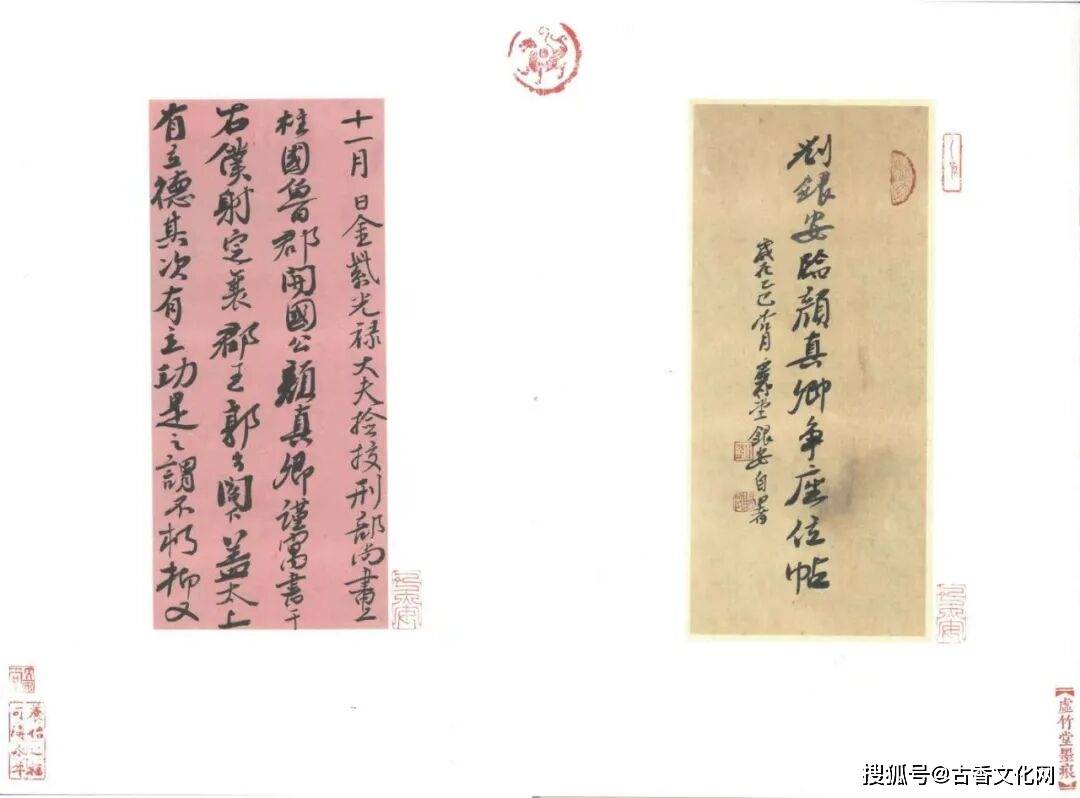 劉銀安臨顏真卿争座位帖
歲在乙巳六月
堂銀安自署
十一月 日金紫光禄大夫撿挍刑部尚書上
柱國魯郡開國公顏真卿謹寓書于
右僕射定襄郡王郭公閤下盖太上
有立德其次有立功是之謂不朽抑又
養怡之福
可得永年
【虛竹堂墨痕】
搜狐号@古香文化网